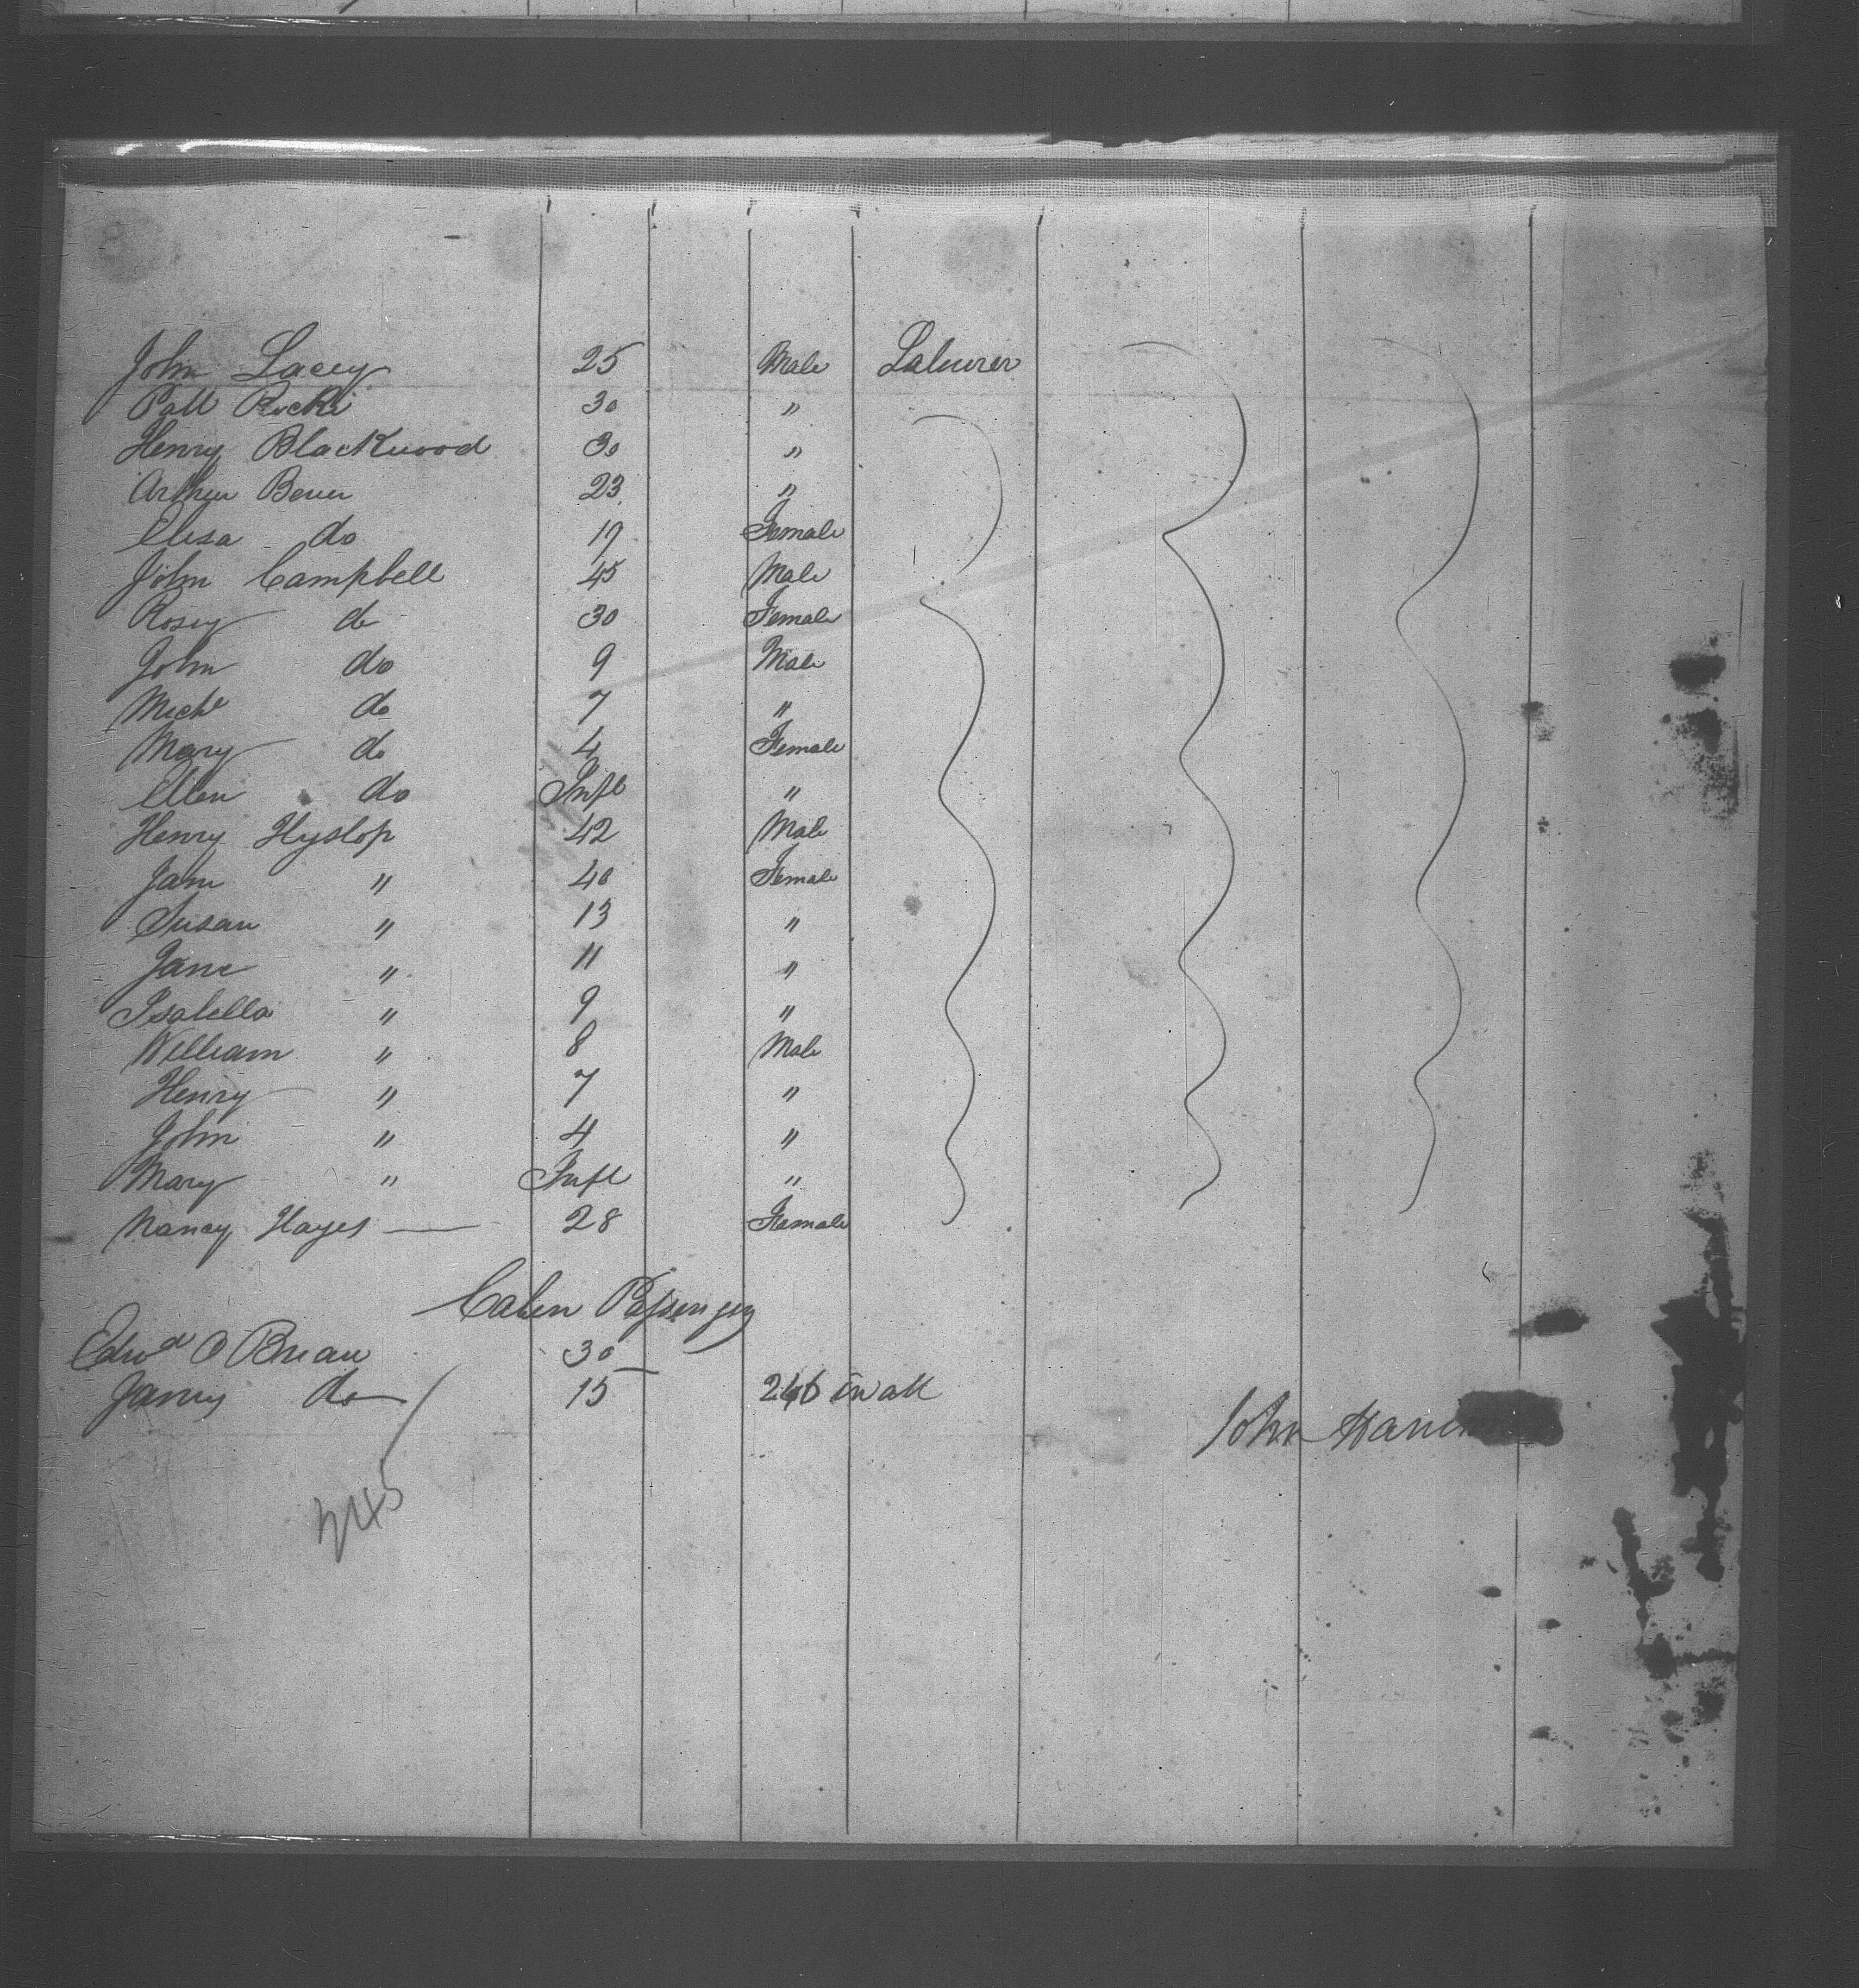 John Lacey 25 Male Laburer
Patt Roche 30 "
Henry Blackwood 30 "
Arthur 23 "
Elisa do 19 Female
John Campbell 45 Male
Rosey do 30 Female
John do 9 Male
Michl do 7 "
Mary do 4 Female
Ellen do Inft "
Henry Hyslop 42 Male
Jane " 40 Female
Susan " 13 "
Jane " 11 "
Isabella " 9 "
William " 8 Male
Henry " 7 "
John " 4 "
Mary " Inft "
Nancy Hayes 28 Female
Cabin Passengers
Edwd O Brien 30
do 15 246 in all
John
245